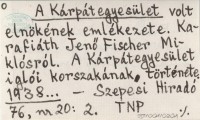 A Kárpátegyesület volt
elnökének emlékezete. Ka-
rafiáth Jenő Fischer Mi-
klósról. A Kárpátegyesület
iglói korszakának története
1938... – Szepesi Hiradó
76, nr 20: 2. TNP